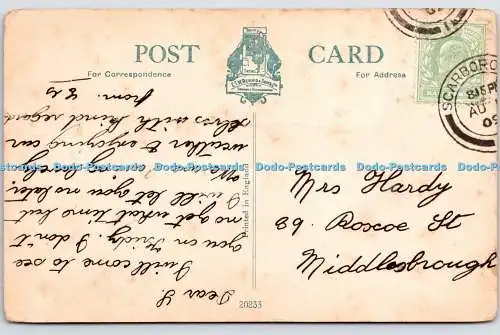 POST CARD
For Correspondence
For Address
Printed in England
SCARBORO
815 PM
AU
09
Dear S.
I will come to see
you on Friday. I don't
no yet what time but
I will let you no later
weather & enjoying our
selves with kind regards
from
Mrs Hardy
89. Roscoe St
Middlesbrough
20233
Dodo-Postcards Dodo-Postcards Dodo-Postcards Dodo-Postcards Dodo-Postcards